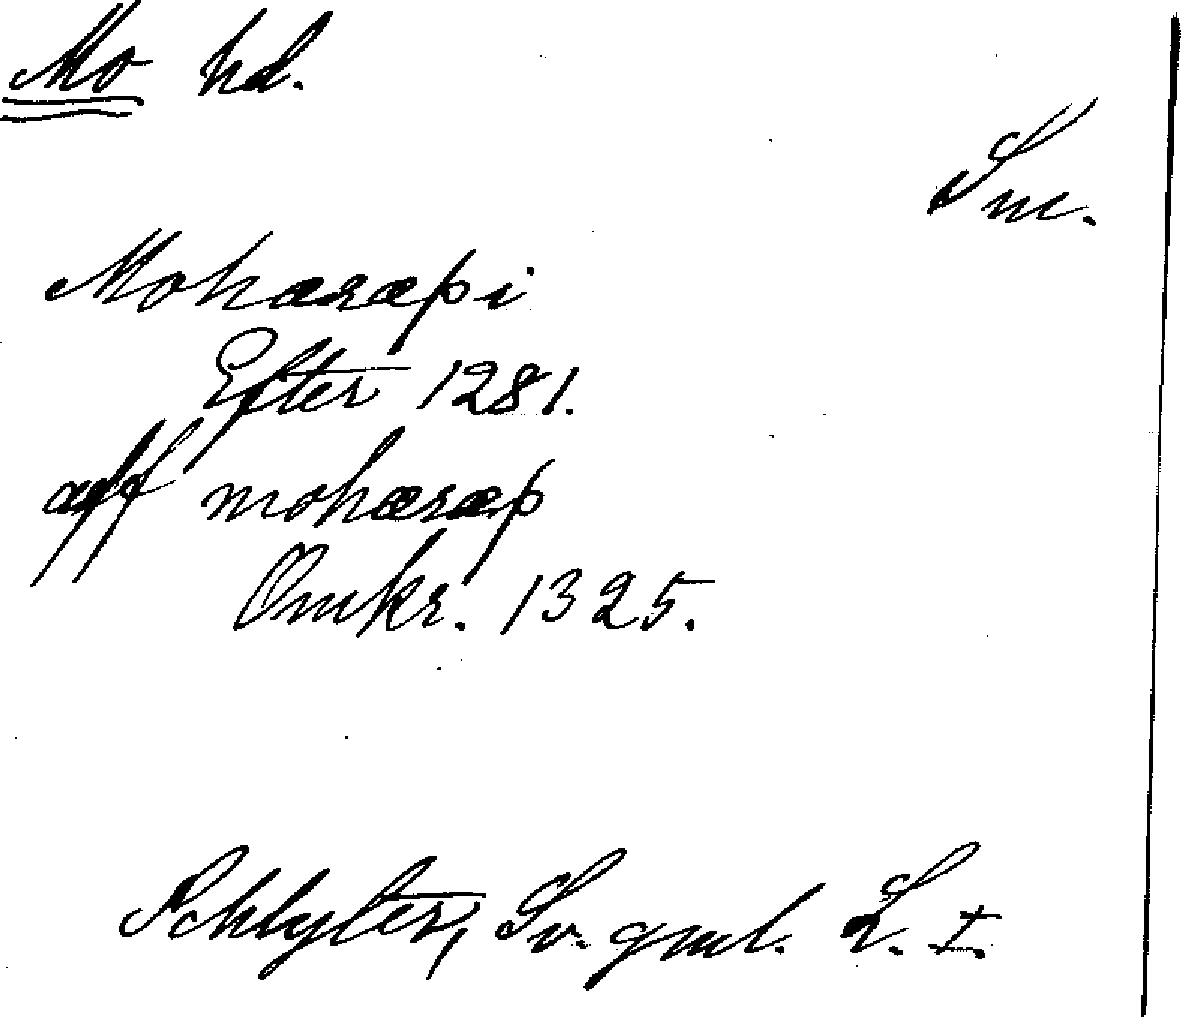 Mo hd.
Sm.
Mohæræþi
Efter 1281.
aff mohæræþ
Omkr. 1325.
Schlyter, Sv. gml. L. I.